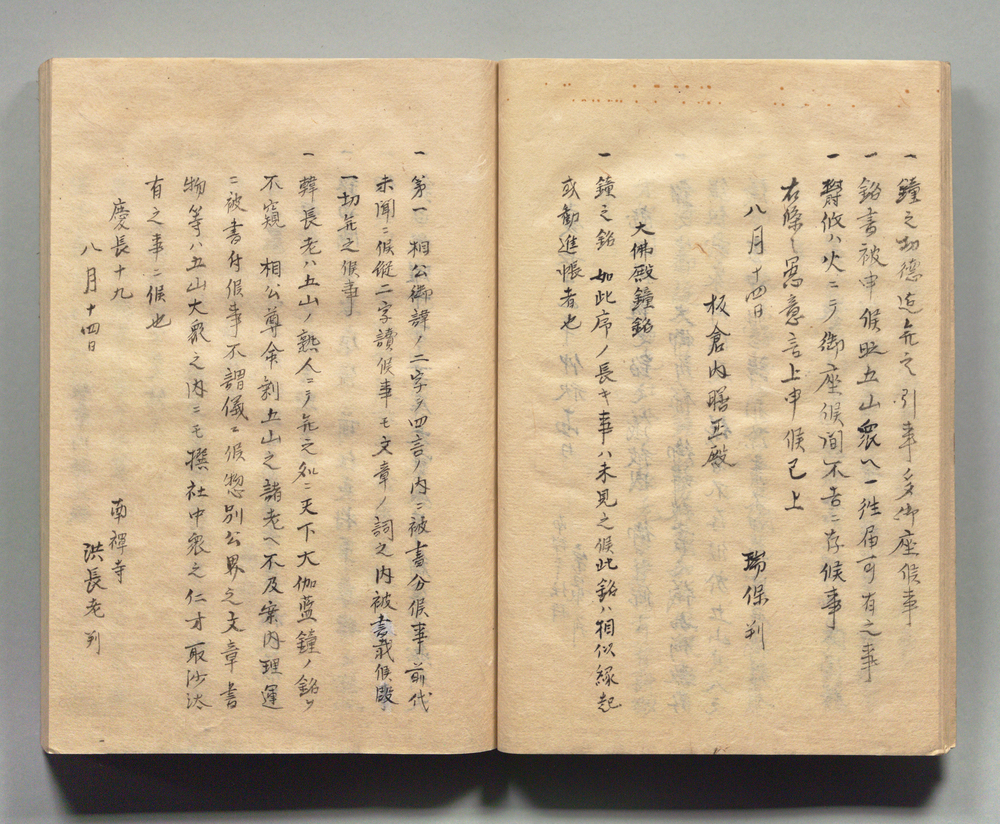 一 鐘之功德迄無之引事多御座候事
一 銘書被申候時五山衆へ一往届可有之事
一 對仗ハ次ニテ御座候間不吉ニ存候事
右條々愚意言上申候已上
八月十四日 瑞保判
板倉内膳正殿
大佛殿鐘銘
一 鐘之銘如此序ノ長キ事ハ未見之候此銘ハ相似縁起
或勧進帳者也
一 第一相公御諱ノ二字ヲ四言ノ内ニ被書分候事前代
未聞ニ候縱二字讀候事モ文章ノ詞之内被書載候段
一切無之候事
一 韓長老ハ五山ノ熟人ニテ無之処ニ天下大伽藍鐘ノ銘ヲ
不窺相公尊命剰五山之諸老ヘ不及案内理運
ニ被書付候事不謂儀ニ候惣別公界之文章書
物等ハ五山大衆之内ニモ撰社中衆之仁才取沙汰
有之事ニ候也
慶長十九
八月十四日
南禪寺
洪長老判